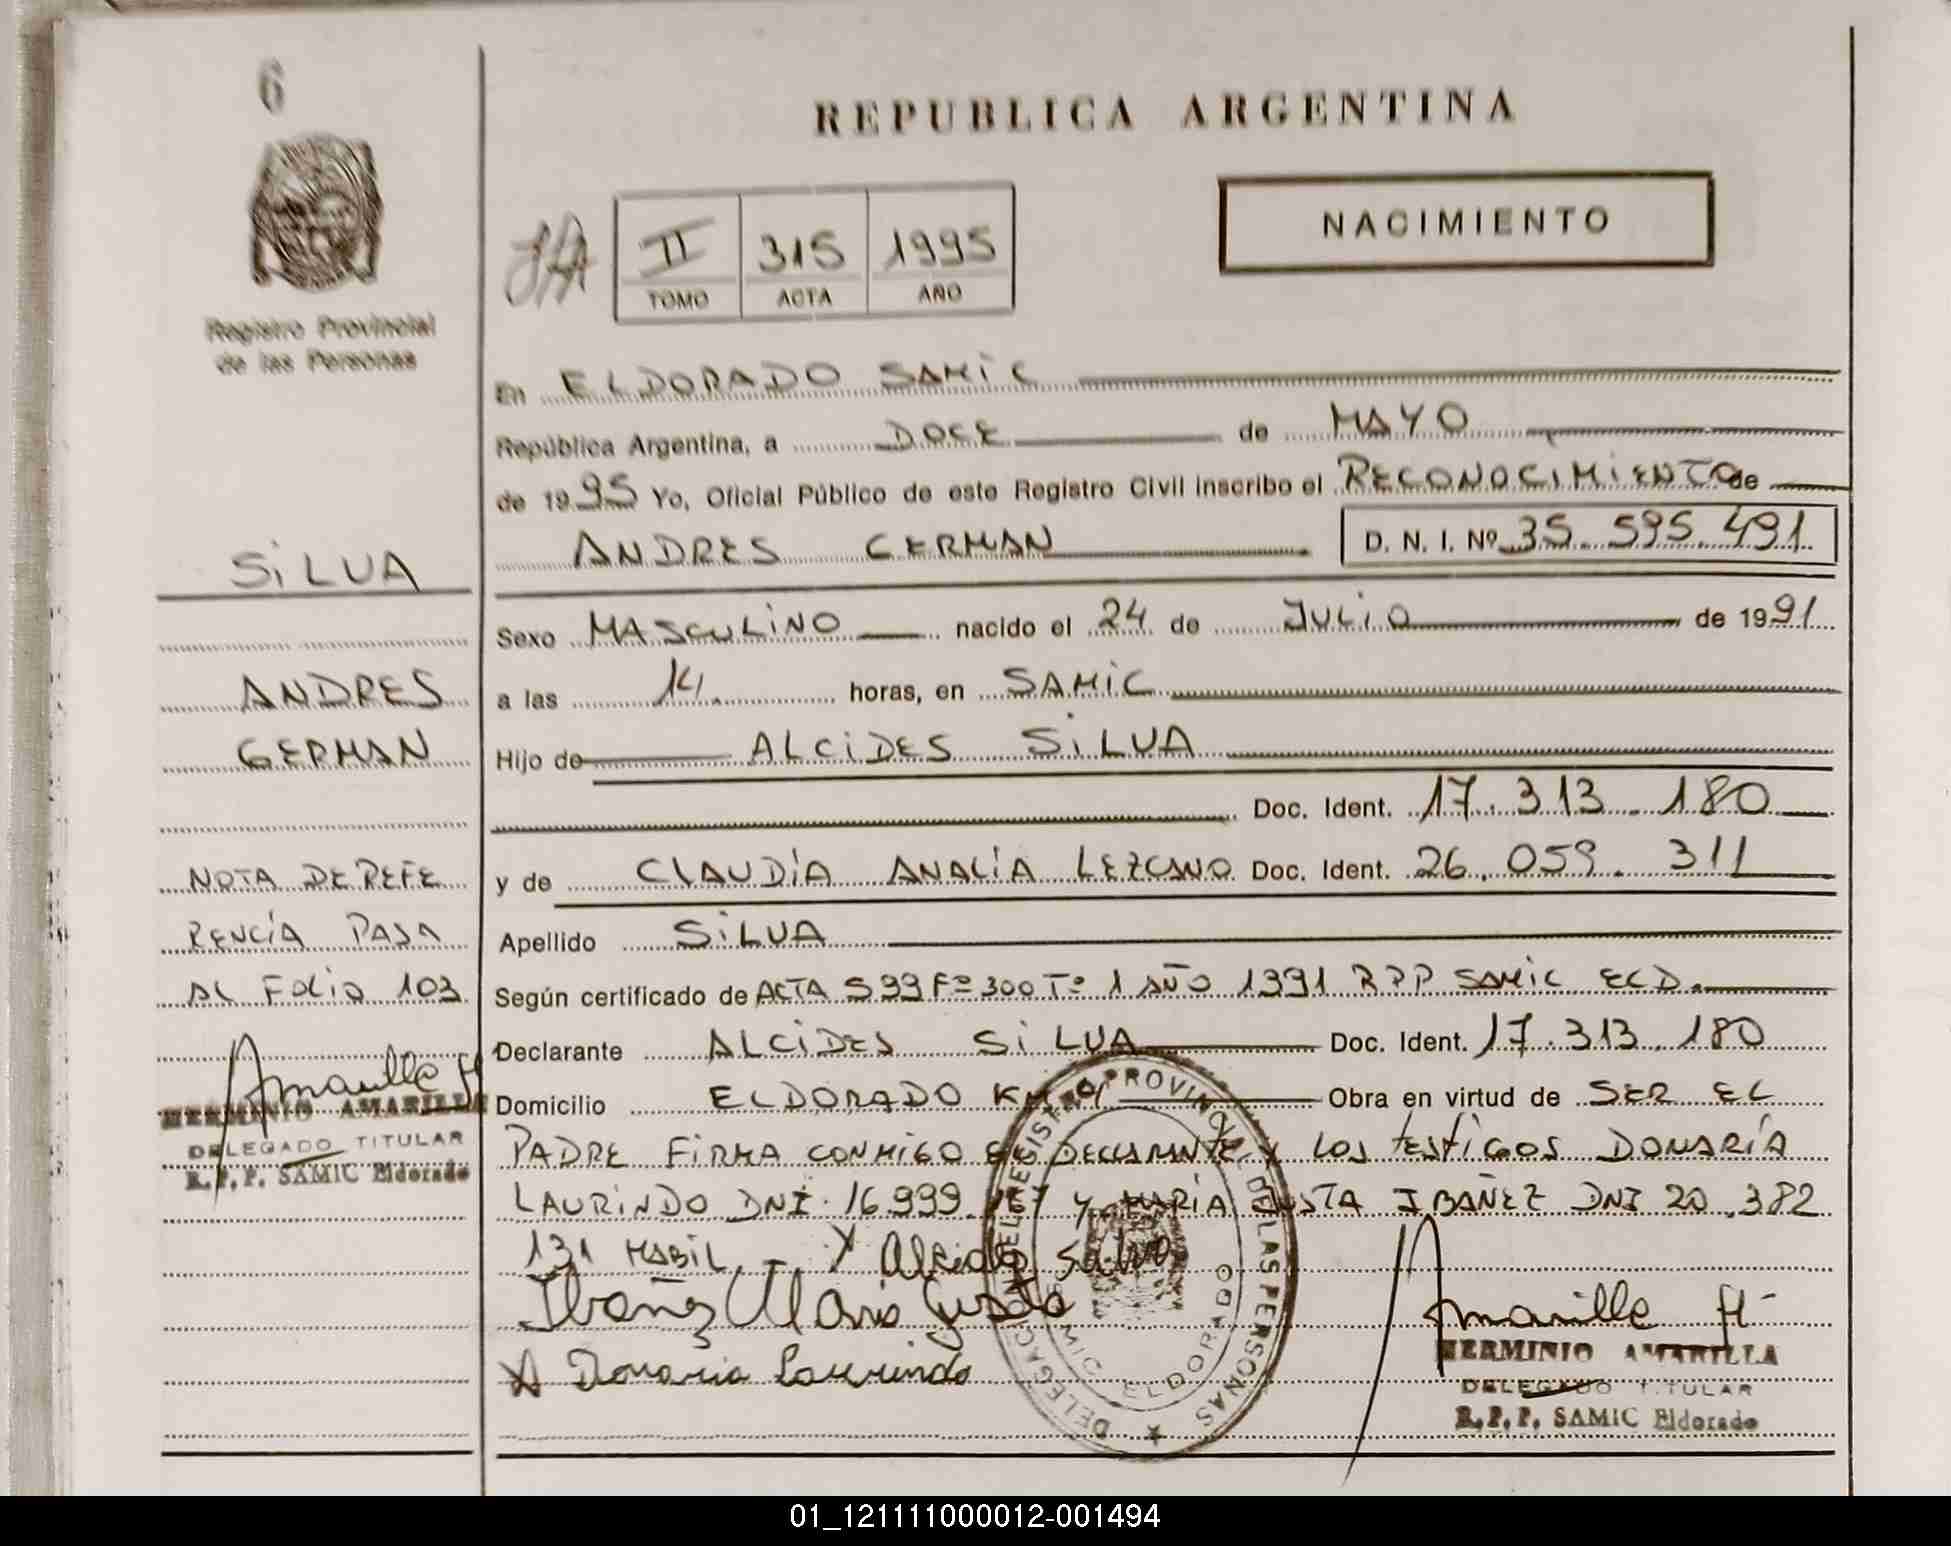 6
REPUBLICA ARGENTINA
NACIMIENTO
II 315 1995
TOMO ACTA AÑO
Registro Provincial
de las Personas
En ELDORADO SAMIC
República Argentina, a DOCE de MAYO
de 1995 Yo, Oficial Público de este Registro Civil inscribo el RECONOCIMIENTO de
ANDRES GERMAN D. N. I. Nº 35.595.491
Sexo MASCULINO nacido el 24 de JULIO de 1991
a las 14 horas, en SAMIC
Hijo de ALCIDES SILVA
Doc. Ident. 17.313.180
y de CLAUDIA ANALIA LEZCANO Doc. Ident. 26.059.311
Apellido SILVA
Según certificado de ACTA 599 Fº 300 Tº 1 AÑO 1991 RPP SAMIC ELD.
Declarante ALCIDES SILVA Doc. Ident. 17.313.180
Domicilio ELDORADO KM 9 Obra en virtud de SER EL
PADRE FIRMA CONMIGO EL DECLARANTE Y LOS TESTIGOS DONARIA
LAURINDO DNI 16.999. Y MARIA JUSTA IBAÑEZ DNI 20.382
131 HABIL.- X Alcides Silva
Ibañez Maria Justa
X Donaria Laurindo
Amarilla H
HERMINIO AMARILLA
DELEGADO TITULAR
R.P.P. SAMIC Eldorado
DELEGACION DEL REGISTRO PROVINCIAL DE LAS PERSONAS
SAMIC ELDORADO
SILVA
ANDRES
GERMAN
NOTA DE REFE
RENCIA PASA
AL FOLIO 103
Amarilla H
HERMINIO AMARILLA
DELEGADO TITULAR
R.P.P. SAMIC Eldorado
01_121111000012-001494